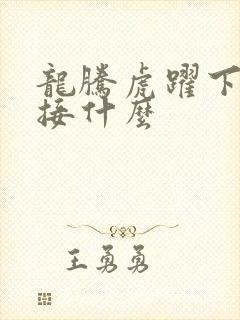 龍騰虎躍下
接什麼
王勇勇